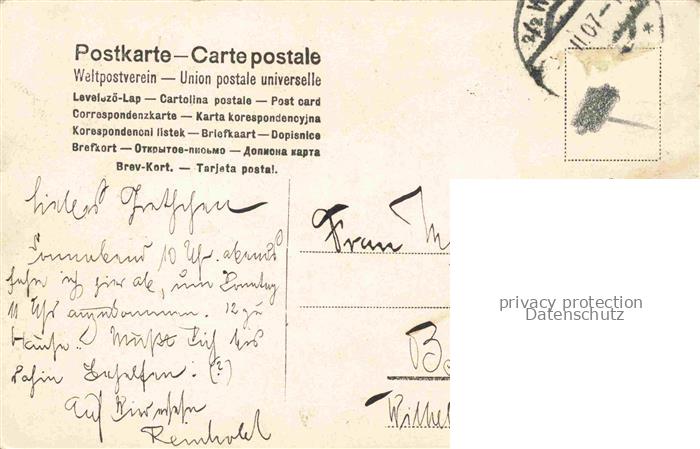 Postkarte — Carte postale
Weltpostverein — Union postale universelle
Levelező-Lap — Cartolina postale — Post card
Correspondenzkarte — Karta korespondencyjna
Korespondencni listek — Briefkaart — Dopisnice
Brefkort — Открытое-письмо — Дописна карта
Brev-Kort. — Tarjeta postal.
VI.07
liebes Gretchen
Sonnabend 10 Uhr abends
fahr ich hier ab, um Sonntag
11 Uhr anzukommen. 12 zu
Hause. Mußt Dich bis
dahin behelfen. (?)
Auf Wiedersehn
Reinhold
Frau M
B
Wilhel
privacy protection
Datenschutz